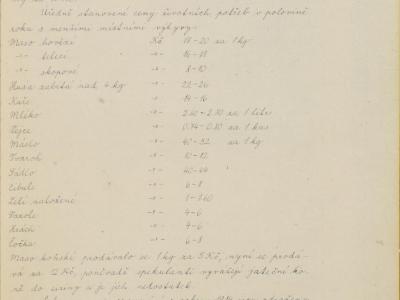 Úředně stanovené ceny životních potřeb v polovině
roku s menšími místními výkyvy:
Maso hovězí Kč 18-20 za 1 kg
-"- telecí -"- 16-18
-"- skopové -"- 8-10
Husa zabitá nad 4 kg -"- 22-26
Kuře -"- 14-16
Mléko -"- 2.60-2.80 za 1 litr
Vejce -"- 0.74-0.80 za 1 kus
Máslo -"- 40-52 za 1 kg
Tvaroh -"- 10-12
Sádlo -"- 40-44
Cibule -"- 6-8
Zelí naložené -"- 1-1.60
Fazole -"- 4-6
Hrách -"- 4-6
Čočka -"- 6-8
Maso koňské prodávalo se 1 kg za 5 Kč, nyní se prodá-
vá za 12 Kč, poněvadž spekulanti vyvážejí jateční ko-
ně do ciziny a je jich nedostatek.